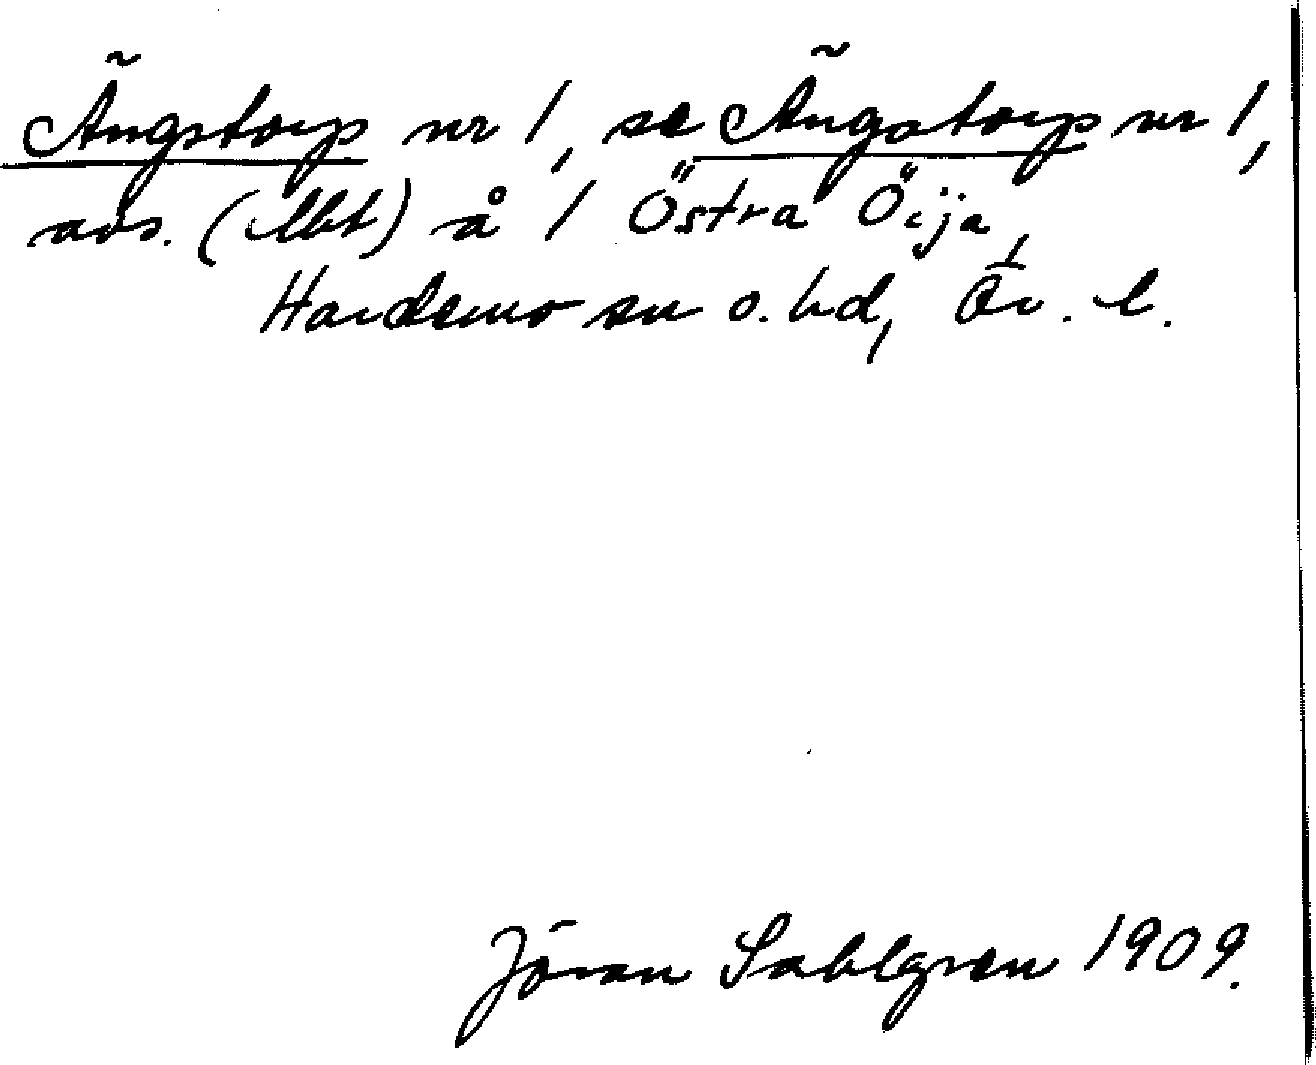 Ängstorp nr 1, se Ängatorp nr 1,
avs. (lbt) å 1 Östra Öija,
Hardemo sn o. hd, Ör. l.
Jöran Sahlgren 1909.